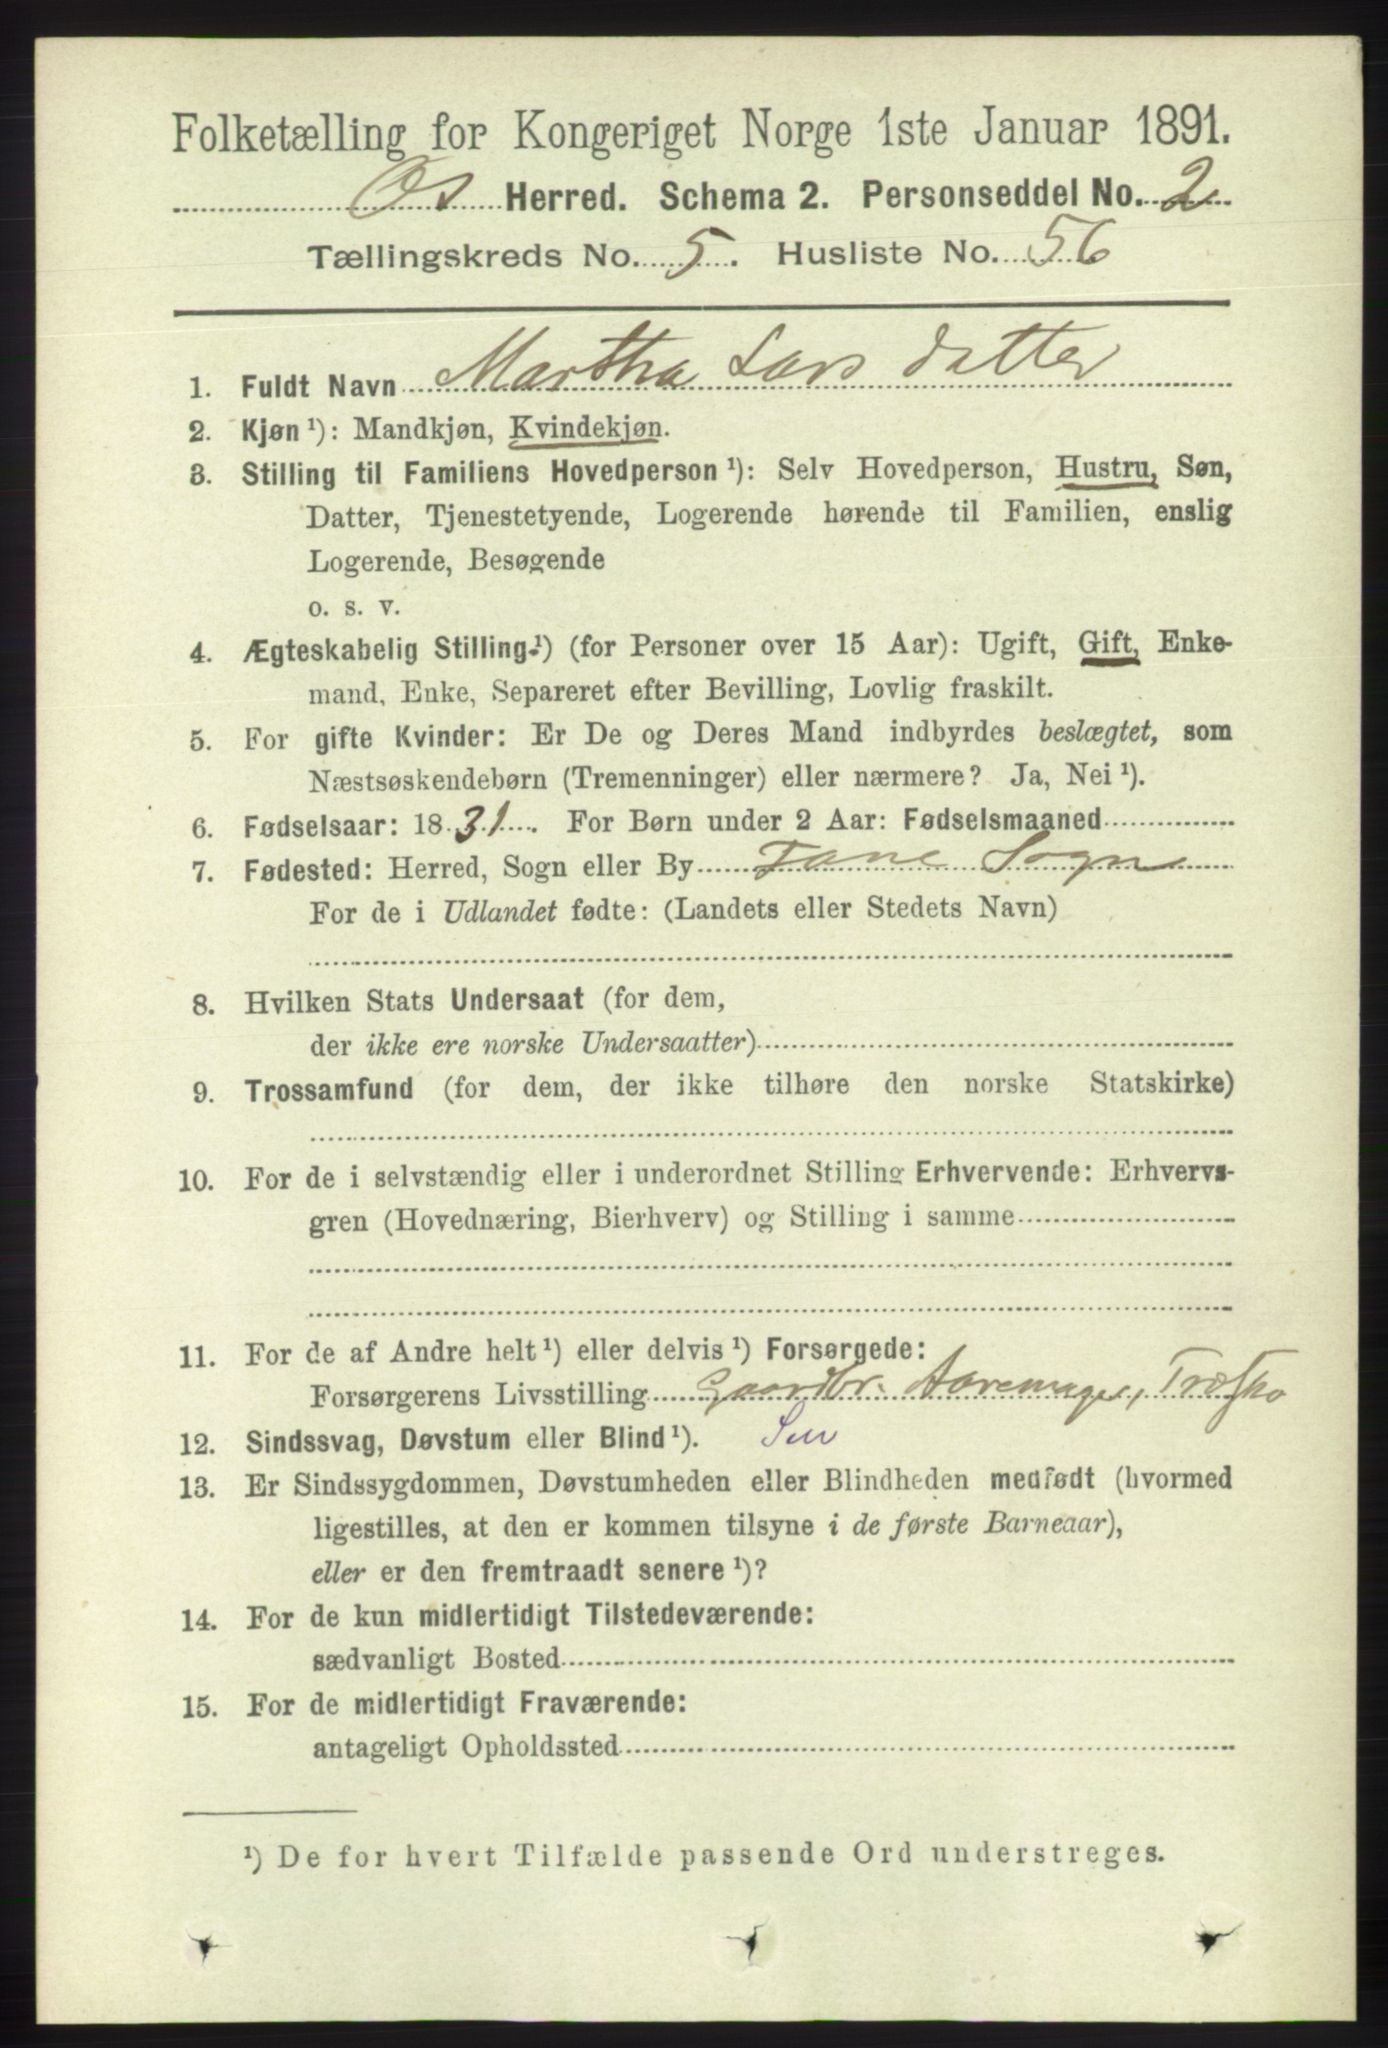 Folketælling for Kongeriget Norge 1ste Januar 1891.
Os Herred. Schema 2. Personseddel No. 2
Tællingskreds No. 5. Husliste No. 56
1. Fuldt Navn Martha Lars datter
2. Kjøn ¹): Mandkjøn, Kvindekjøn.
3. Stilling til Familiens Hovedperson ¹): Selv Hovedperson, Hustru, Søn,
Datter, Tjenestetyende, Logerende hørende til Familien, enslig
Logerende, Besøgende
o. s. v.
4. Ægteskabelig Stilling ¹) (for Personer over 15 Aar): Ugift, Gift, Enke-
mand, Enke, Separeret efter Bevilling, Lovlig fraskilt.
5. For gifte Kvinder: Er De og Deres Mand indbyrdes beslægtet, som
Næstsøskendebørn (Tremenninger) eller nærmere? Ja, Nei ¹).
6. Fødselsaar: 1831. For Børn under 2 Aar: Fødselsmaaned
7. Fødested: Herred, Sogn eller By Fane Sogn
For de i Udlandet fødte: (Landets eller Stedets Navn)
8. Hvilken Stats Undersaat (for dem,
der ikke ere norske Undersaatter)
9. Trossamfund (for dem, der ikke tilhøre den norske Statskirke)
10. For de i selvstændig eller i underordnet Stilling Erhvervende: Erhvervs-
gren (Hovednæring, Bierhverv) og Stilling i samme
11. For de af Andre helt ¹) eller delvis ¹) Forsørgede:
Forsørgerens Livsstilling Gaardbr. Aaremager, Træsko
12. Sindssvag, Døvstum eller Blind ¹).
13. Er Sindssygdommen, Døvstumheden eller Blindheden medfødt (hvormed
ligestilles, at den er kommen tilsyne i de første Barneaar),
eller er den fremtraadt senere ¹)?
14. For de kun midlertidigt Tilstedeværende:
sædvanligt Bosted
15. For de midlertidigt Fraværende:
antageligt Opholdssted
¹) De for hvert Tilfælde passende Ord understreges.